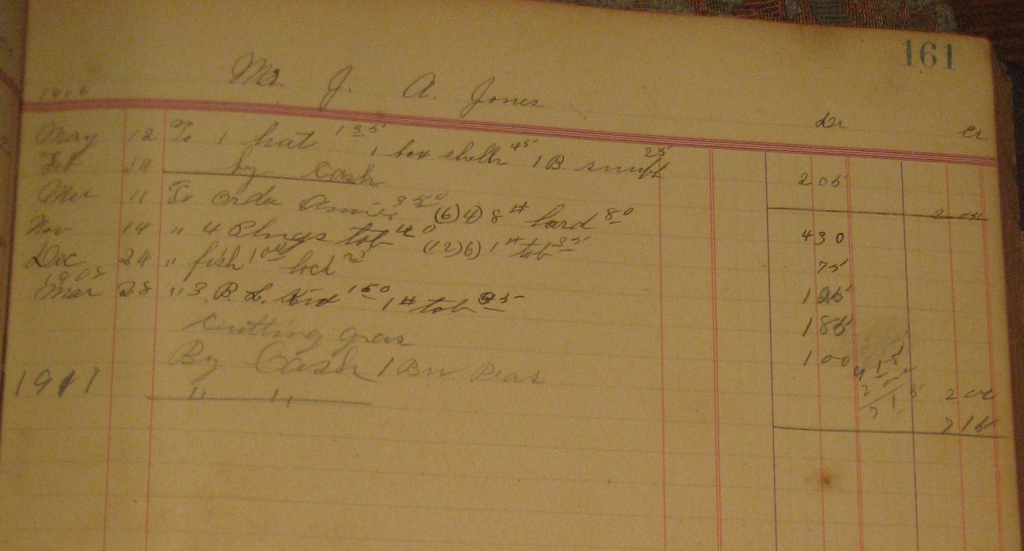 161
Mr. J. A. Jones
1906 dr cr
May 12 To 1 hat 1 35 1 box shells 45 1 B. snuff 25 2 05
14 by Cash 2 05
11 To order 3 50 (6)4) 8 # lard 80 4 30
Nov 14 " 4 Plugs tob 40 (12)6) 1 # tob 35 75
Dec 24 " fish 1 00 lock 25 1 25
1908
Mar 28 " 3 B. L. 1 50 1 # tob 35 1 85
Cutting gras 1 00
By Cash 1 Bu Peas 2 00
1911 " " 7 15